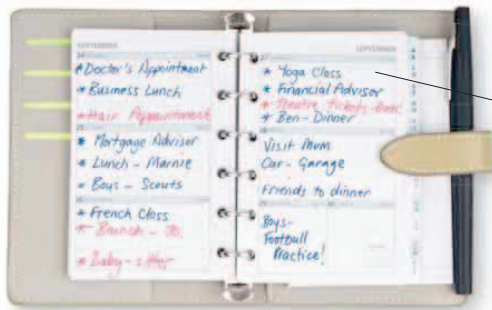 SEPTEMBER
24
* Doctor's Appointment
* Business Lunch
* Hair Appointment
25
* Mortgage Advisor
* Lunch - Marnie
* Boys - Scouts
* French Class
* Brunch - Jo
* Baby-sitter
SEPTEMBER
27
* Yoga Class
* Financial Advisor
* Theatre Tickets-
* Ben - Dinner
Visit Mum
Car - Garage
Friends to dinner
Boys-
Football
Practice!